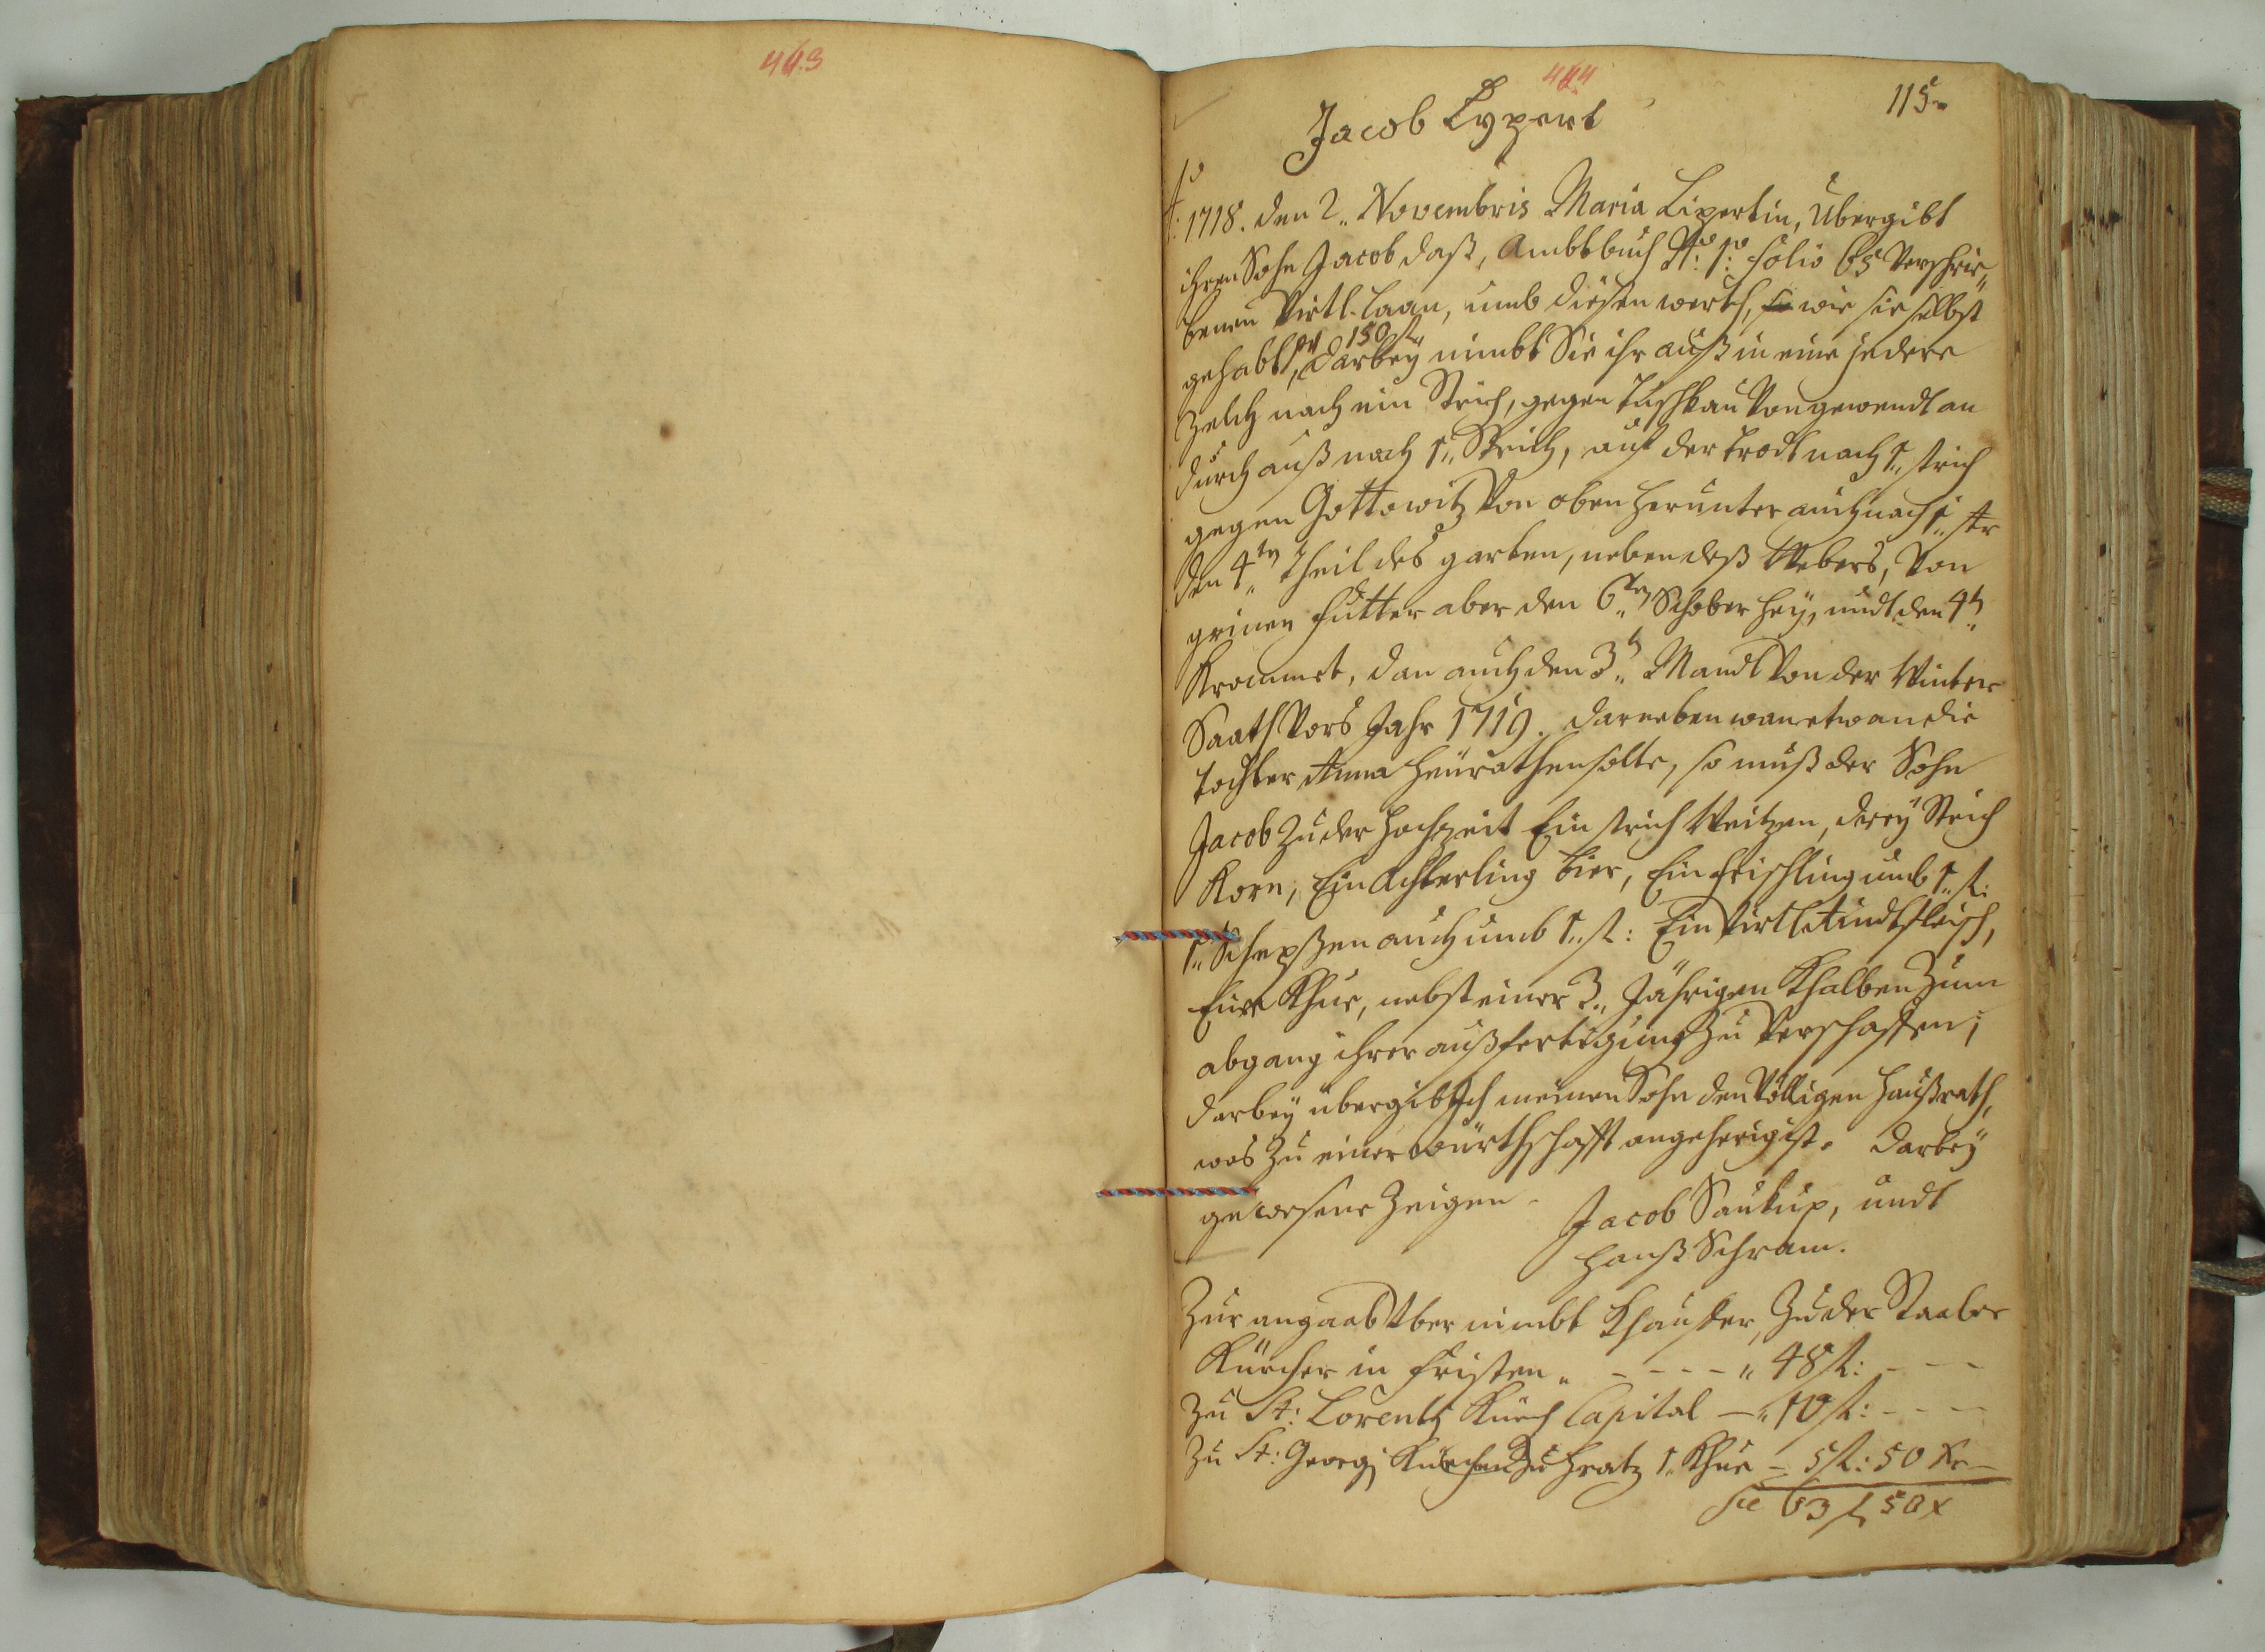 443
444
115.
Jacob Lypert
Aō
1718. den 2.. Novembris Maria Lipertin, Übergibt
ihren Sohn Jacob daß, Ambtbuch Nō: 1ō: folio 65 Verschrie„
benen Virtl. laan, umb diesen werth, wie sie selbst
gehabt, pr 150 fl darbey nimbt Sie ihr auß in eine jedere
Zelch nach ein Strich, gegen Tuschkau Von gewendt an
durch auß nach 1.. Strich, auf der trodt nach 1.. strich
gegen Gottowitz Von oben herunter auch nach 1.. str
den 4.ten Theil des garten, neben deß Webers, Von
grinen Futter aber den 6.ten Schober hey, undt den 4t.
Krommet, dan auch den 3t. Mandl Von der Winter
Saath Vors Jahr 1719. darneben wan etwan die
tochter Anna heürathen solte, so muß der Sohn
Jacob Zu der hochzeit Ein strich Weitzen, drey Strich
Korn, Ein Achterling bier, Ein frischling umb 1.. fl:
1.. Schepßen auch umb 1.. fl: Ein Virtl Rindtfleisch,
Eine Khue, nebst einer 3.. Jährigen Khalben Zum
abgang ihrer außfertigung Zu Verschaffen;
darbey übergib Ich meinen Sohn den Völligen haußrath,
was Zu einer würthschafft angeherig ist. darbey
gewesene Zeigen.
Jacob Saukup, undt
Hanß Schram.
Zur angaab Über nimbt Khauffer, Zu der Staaber
Kürcher in fristen.. - - - - .. 48 fl: - - -
Zu St: Lorentz Kürch Capital — .. 10 fl: - - -
Zu St: Georgj Kürchen Zu hratz 1.. Khue — 5 fl: 50 Kr —
63 fl 50 x